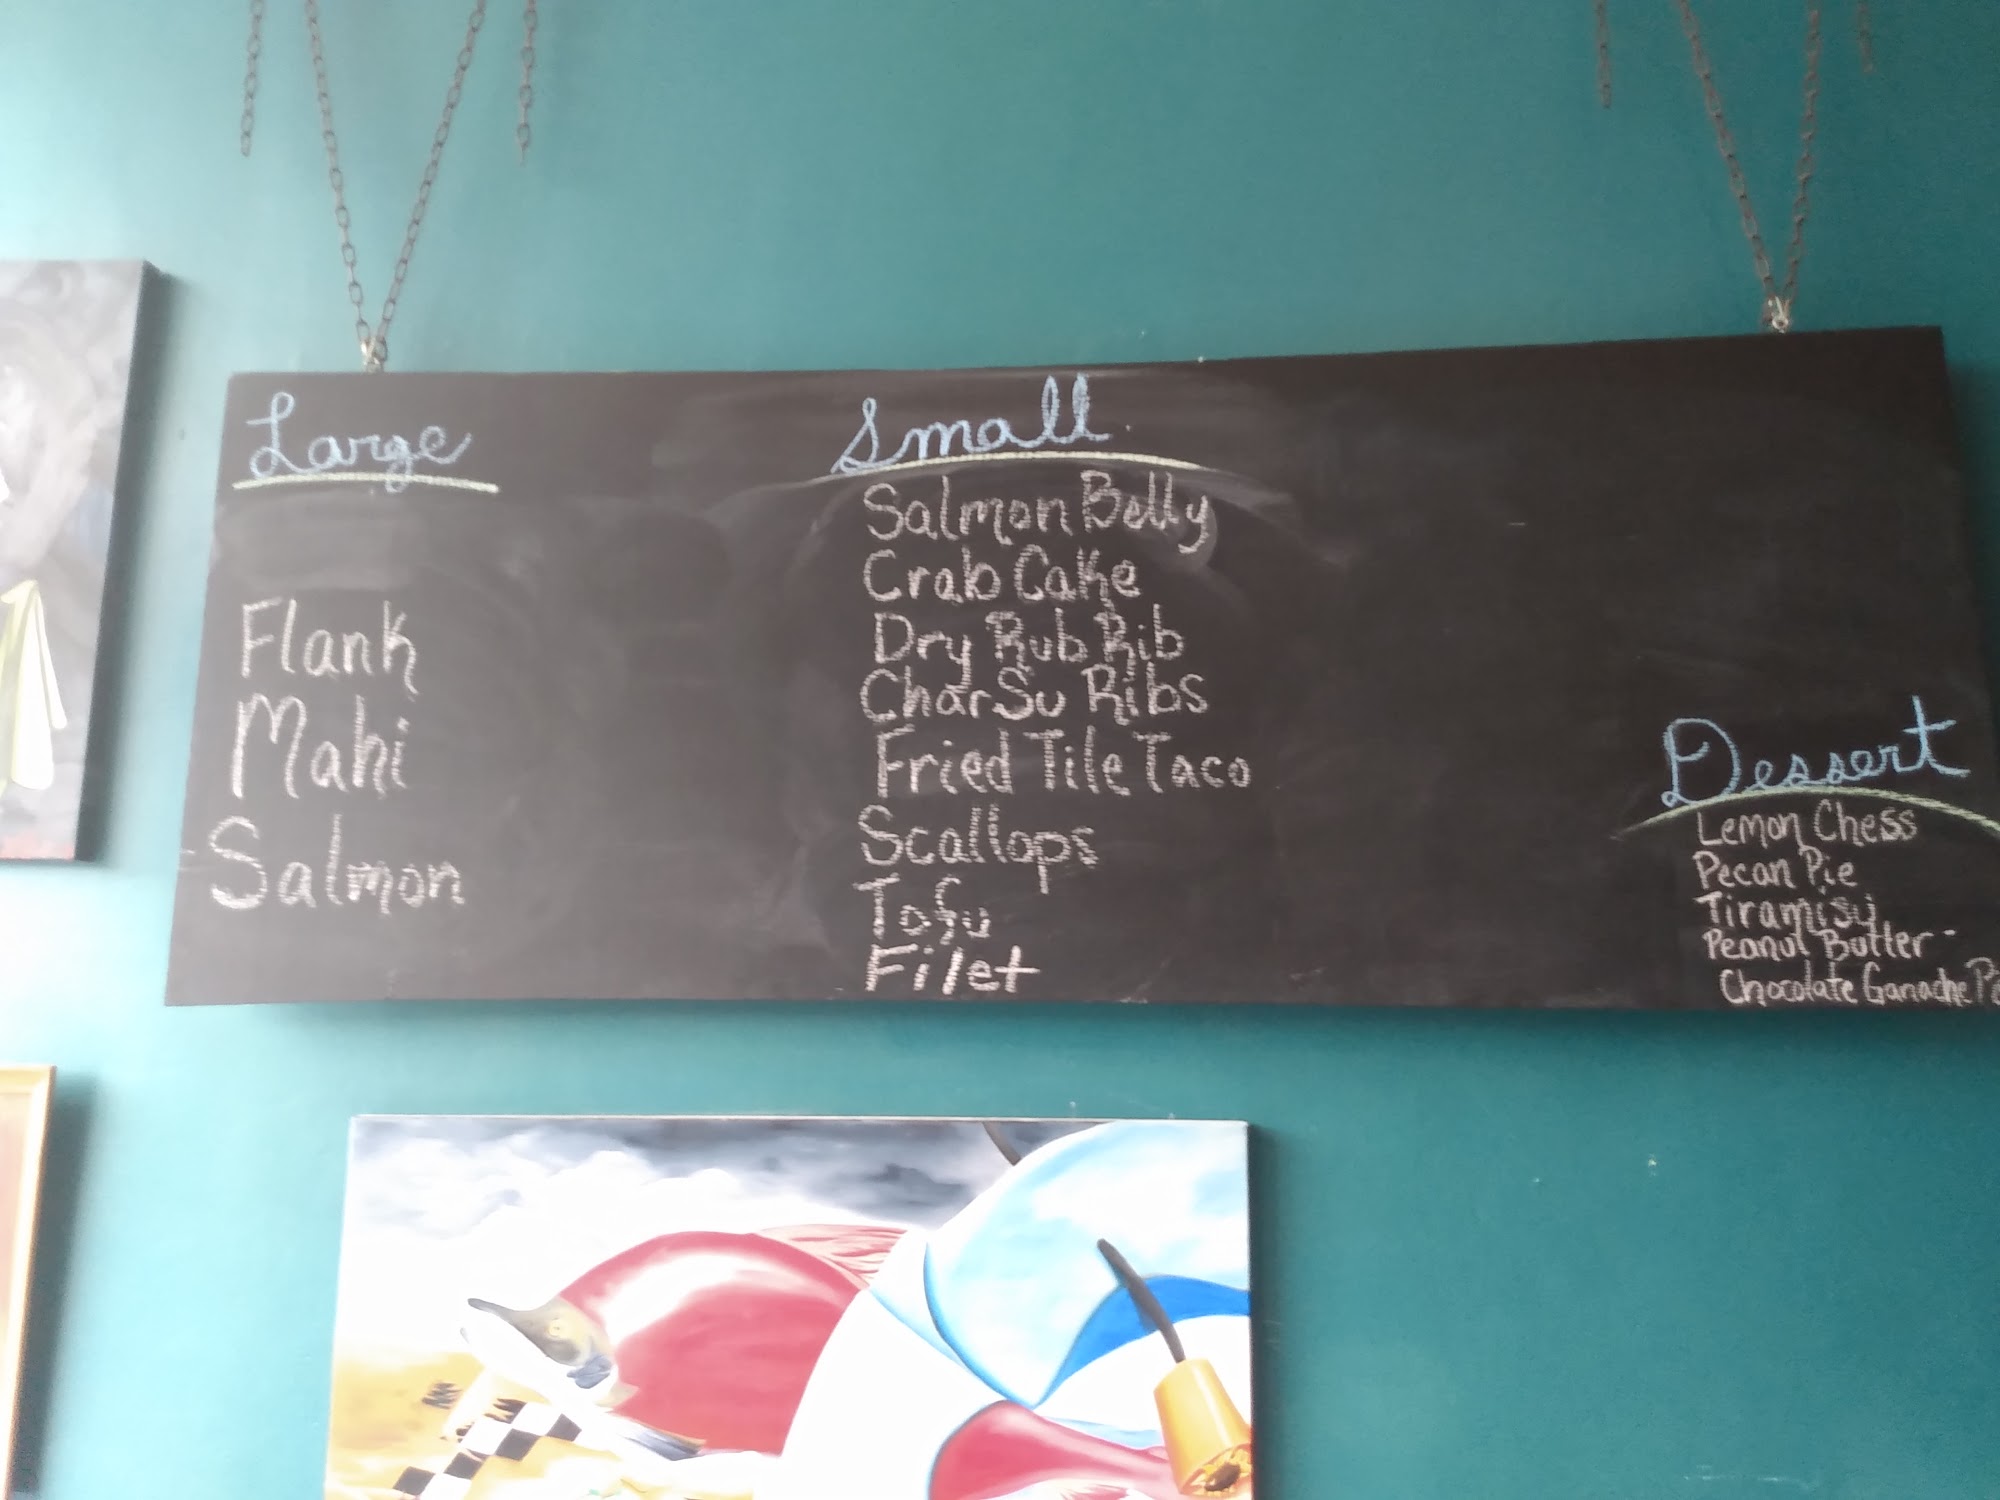 Large
Flank
Mahi
Salmon
Small
Salmon Belly
Crab Cake
Dry Rub Rib
Char Su Ribs
Fried Tile Taco
Scallops
Tofu
Filet
Dessert
Lemon Chess
Pecan Pie
Tiramisu
Peanut Butter -
Chocolate Ganache